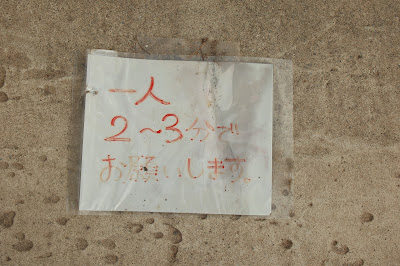 一人
2～3分で
お願いします。